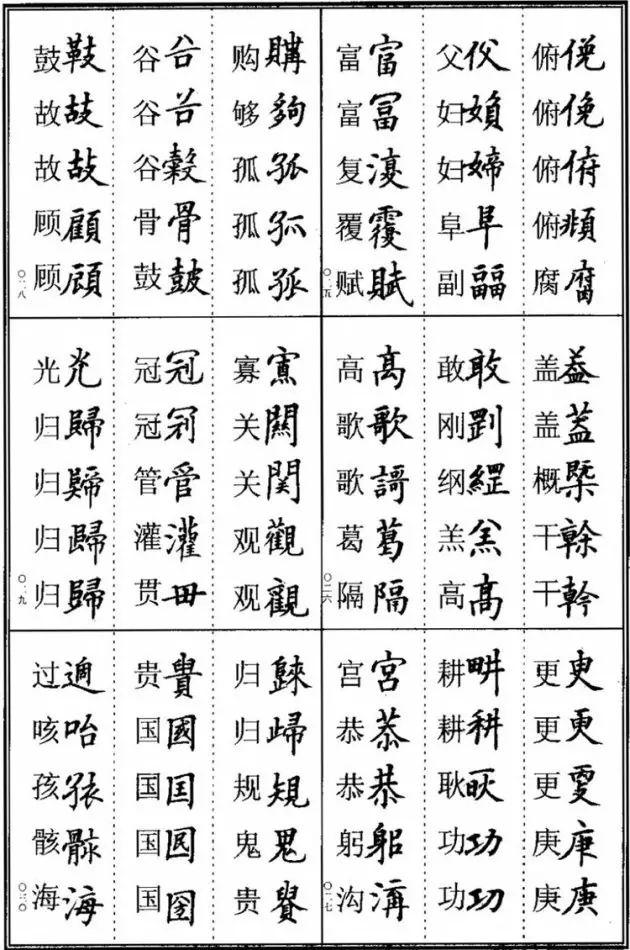 俯俛 俯俛 俯俯 俯頫 腐腐
父㕮 妇媍 妇媂 阜阜 副
富富 富冨 复 覆覆 赋賦
〇二五
盖葢 盖蓋 概槩 干榦 干幹
敢敢 刚 纲 羔羔 高髙
高高 歌歌 歌謌 葛葛 隔隔
〇二六
更 更更 更 庚庚 庚庚
耕畊 耕耕 耿 功功 功㓛
宫宮 恭恭 恭恭 躬躬 沟溝
〇二七
购購 够夠 孤孤 孤孤 孤孤
谷谷 谷谷 谷穀 骨骨 鼓皷
鼓鼓 故故 故故 顾顧 顾顾
〇二八
寡 关關 关関 观觀 观觀
冠冠 冠冠 管管 灌灌 贯毌
光光 归歸 归歸 归歸 归歸
〇二九
归 归歸 规規 鬼鬼 贵
贵貴 国國 国囯 国 国圀
过過 咳咍 孩孩 骸骸 海海
〇三〇